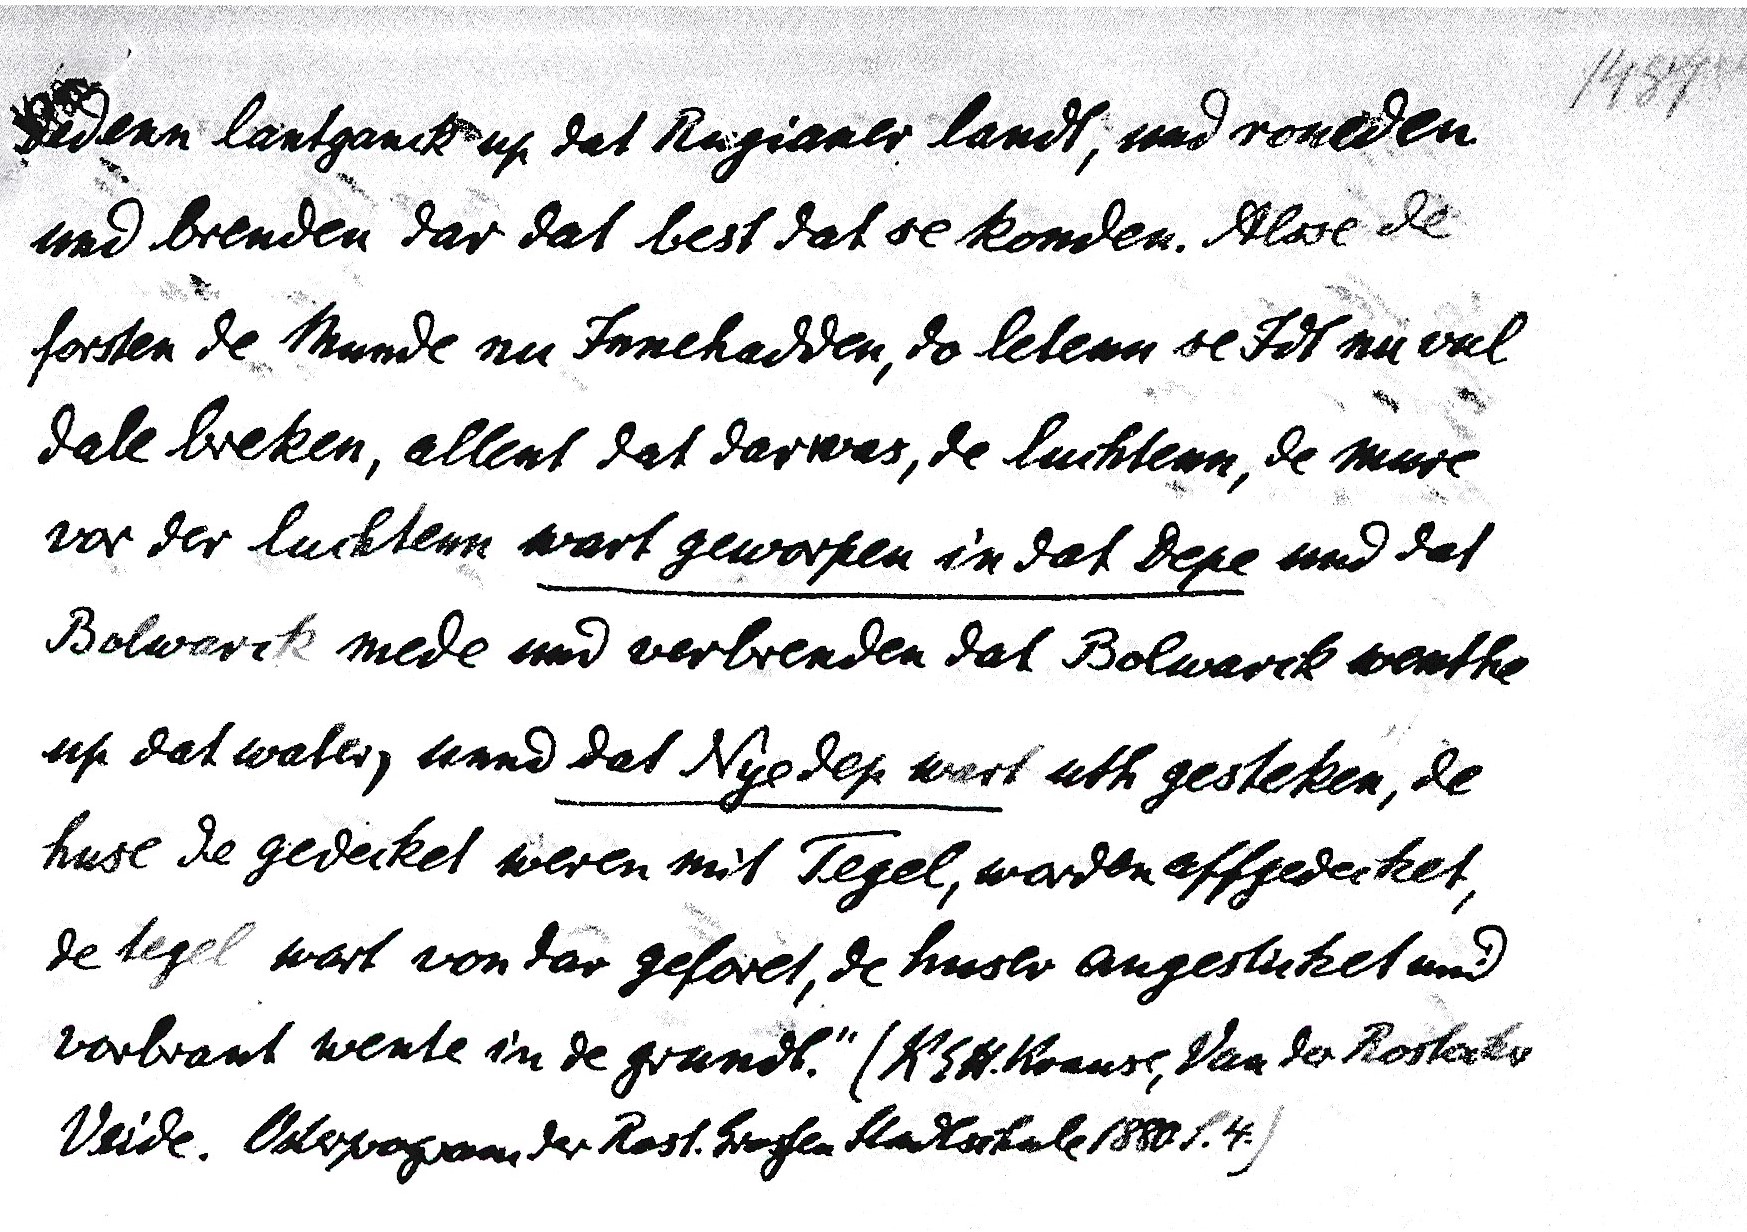 1487
dedenn lantganck up dat Rugianer landt, und roueden
und brenden dar dat best dat se konden. Alsse de
forsten de Munde nu Innehadden, do letenn se Idt nu vul
dale breken, allent dat dar was, de luchtenn, de mure
vor der luchtenn wart geworpen in dat Depe und dat
Bolwarck mede und verbrenden dat Bolwarck wenthe
up dat water, unnd dat Nye dep wart uth gesteken, de
huse de gedecket weren mit Tegel, worden affgedecket,
de tegel wart von dar geforet, de huser angesticket und
vorbrant wente in de grundt." (K E H. Krause, Van der Rostocker
Veide. Osterprogramm der Rost. Grossen Stadtschule 1880 S. 4.)